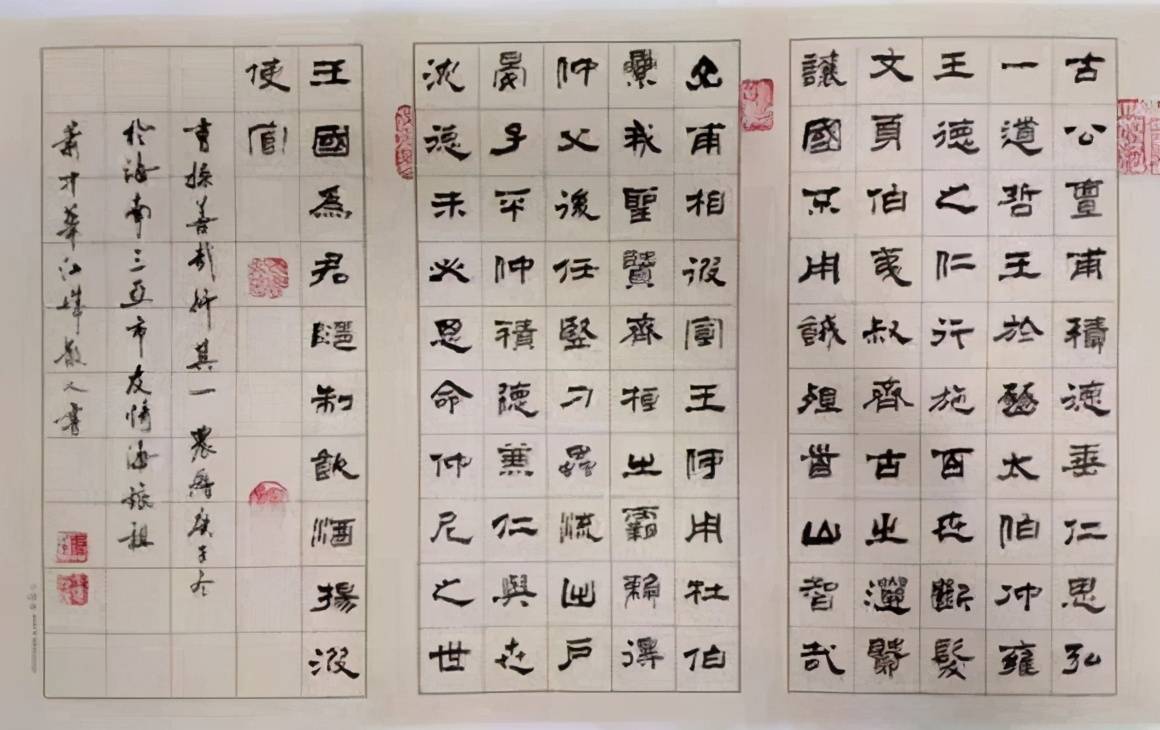 古公亶甫積德垂仁思弘
一道哲王於豳太伯仲雍
王德之仁行施百世斷髮
文身伯夷叔齊古之遺賢
讓國不用餓殂首山智哉
山甫相彼宣王何用杜伯
纍我聖賢齊桓之霸賴得
仲父後任竪刁蟲流出戶
晏子平仲積德兼仁與世
沈德未必思命仲尼之世
王國為君隨制飲酒揚波
使官
曹操善哉行其一 農曆庚子冬
於海南三亞市友情海旅租
才華江散人書